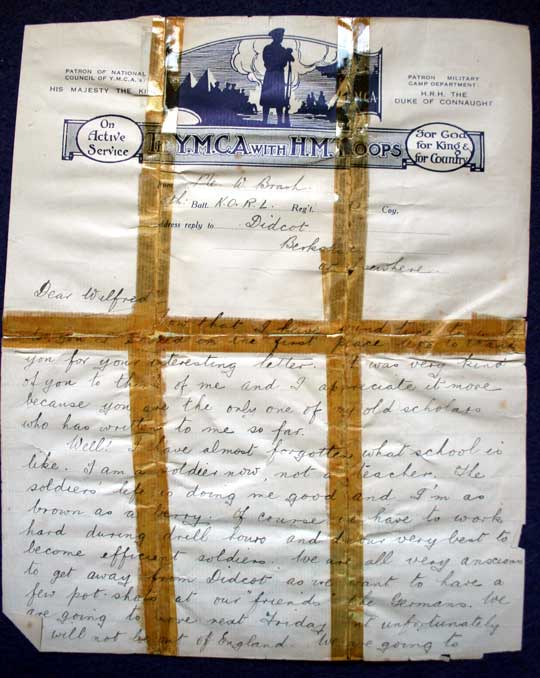 PATRON OF NATIONAL
COUNCIL OF Y.M.C.A.'s
HIS MAJESTY THE KI
PATRON MILITARY
CAMP DEPARTMENT:
H.R.H. THE
DUKE OF CONNAUGHT
On
Active
Service
Y.M.C.A. WITH H.M. TROOPS
For God
for King &
for Country
W. Brash.
Batt. K.O.R.L. Reg't. Coy.
address reply to Didcot.
Berks
where.
Dear Wilfred
that I have
on the first place
you for your interesting letter. It was very kind
of you to think of me and I appreciate it more
because you are the only one of my old scholars
who has written to me so far.
Well! I have almost forgotten what school is
like. I am a soldier now, not a teacher. The
soldiers' life is doing me good and I'm as
brown as a berry. Of course we have to work
hard during drill hours and do our very best to
become efficient soldiers. We are all very anxious
to get away from Didcot as we want to have a
few pot shots at our "friends" the Germans. We
are going to move next Friday but unfortunately
will not be out of England. We are going to